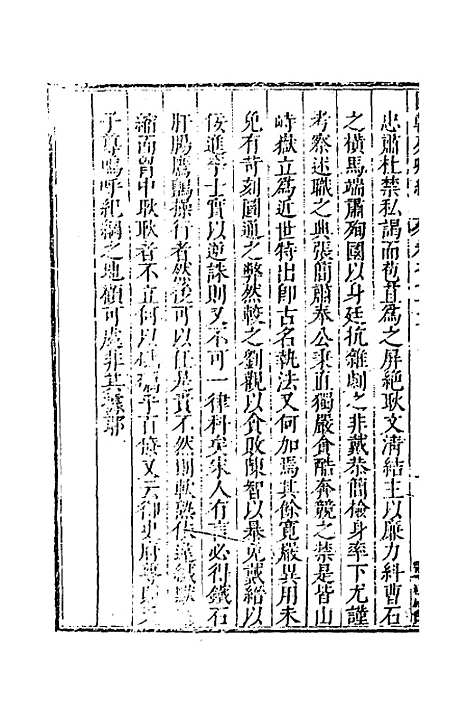 忠肅杜禁私謁而苞苴爲之屏絶耿文清結主以廉力糾曹石
之橫馬端肅殉國以身廷抗雜劇之非戴恭簡檢身率下尤謹
考察述職之典張簡肅奉公秉直獨嚴貪酷奔競之禁是皆山
峙獄立爲近世特出卽古名執法又何加焉其餘寬嚴異用未
免有苛刻圓通之弊然較之劉觀以貪敗陳智以暴免戴縉以
佞進寧士實以逆誅則又不可一律科矣宋人有言必得鐵石
肝腸鷹鸇操行者然後可以任是責不然則軟熟佚違緘默
縮而胷中耿耿者不立何以 乎百僚又云御史府尊則天
子尊嗚呼紀綱之地顧可處非其據耶